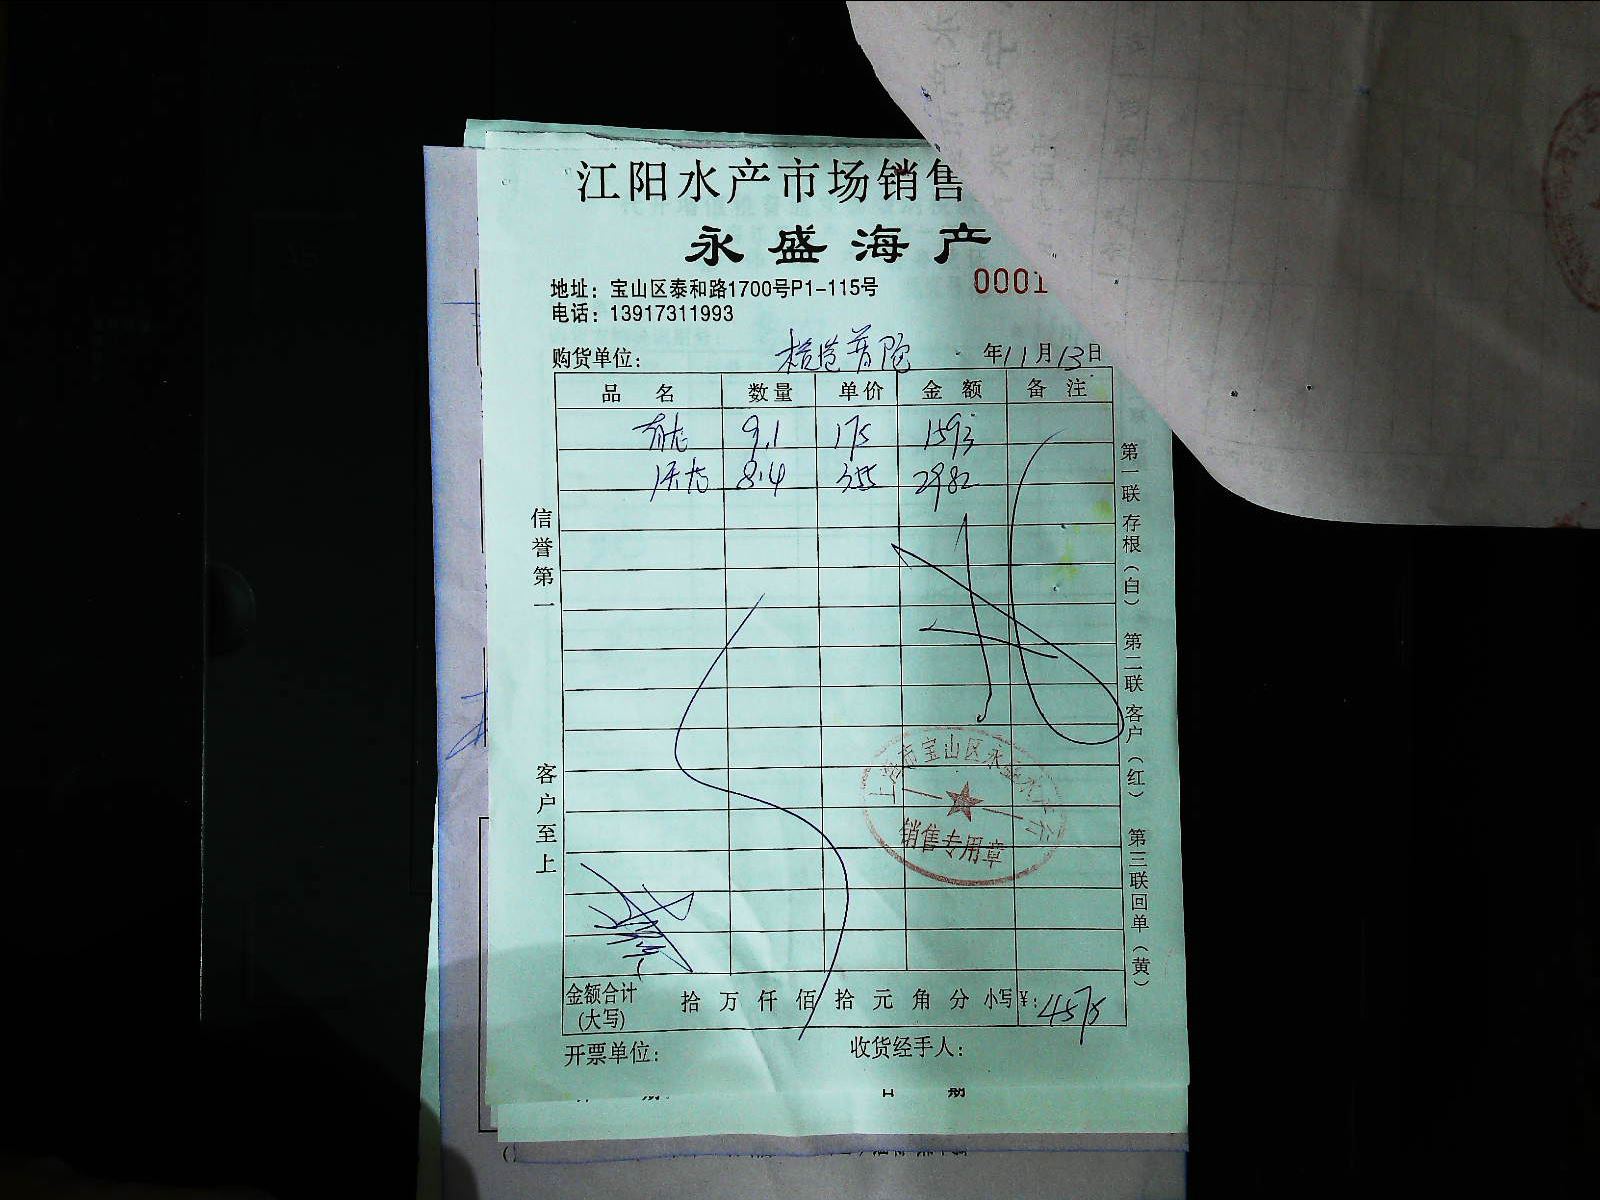 江阳水产市场销售
永盛海产
地址：宝山区泰和路1700号P1-115号
0001
电话：13917311993
购货单位： 普陀 年11月13日
品名 数量 单价 金额 备注
9.1 175 1593
8.4 355 2982
信誉第一
客户至上
第一联存根（白） 第二联客户（红） 第三联回单（黄）
上海市宝山区永盛水产行
销售专用章
金额合计(大写) 拾万仟佰拾元角分 小写¥：4575
开票单位： 收货经手人：